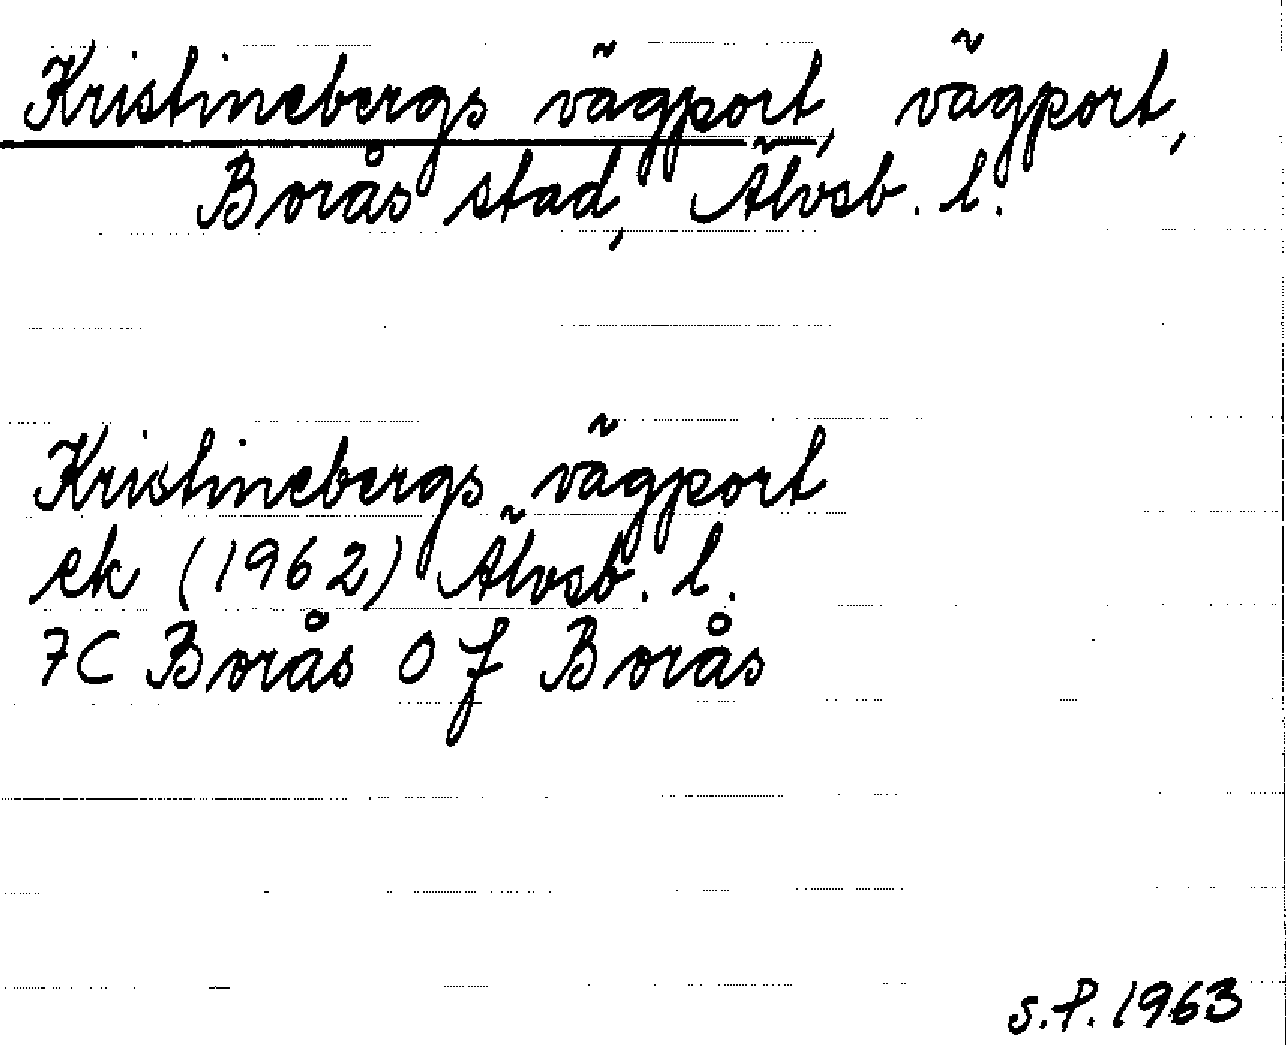 Kristinebergs vägport, vägport,
Borås stad, Älvsb. l.
Kristinebergs vägport
ek (1962) Älvsb. l.
7C Borås 0 f Borås
S.P. 1963